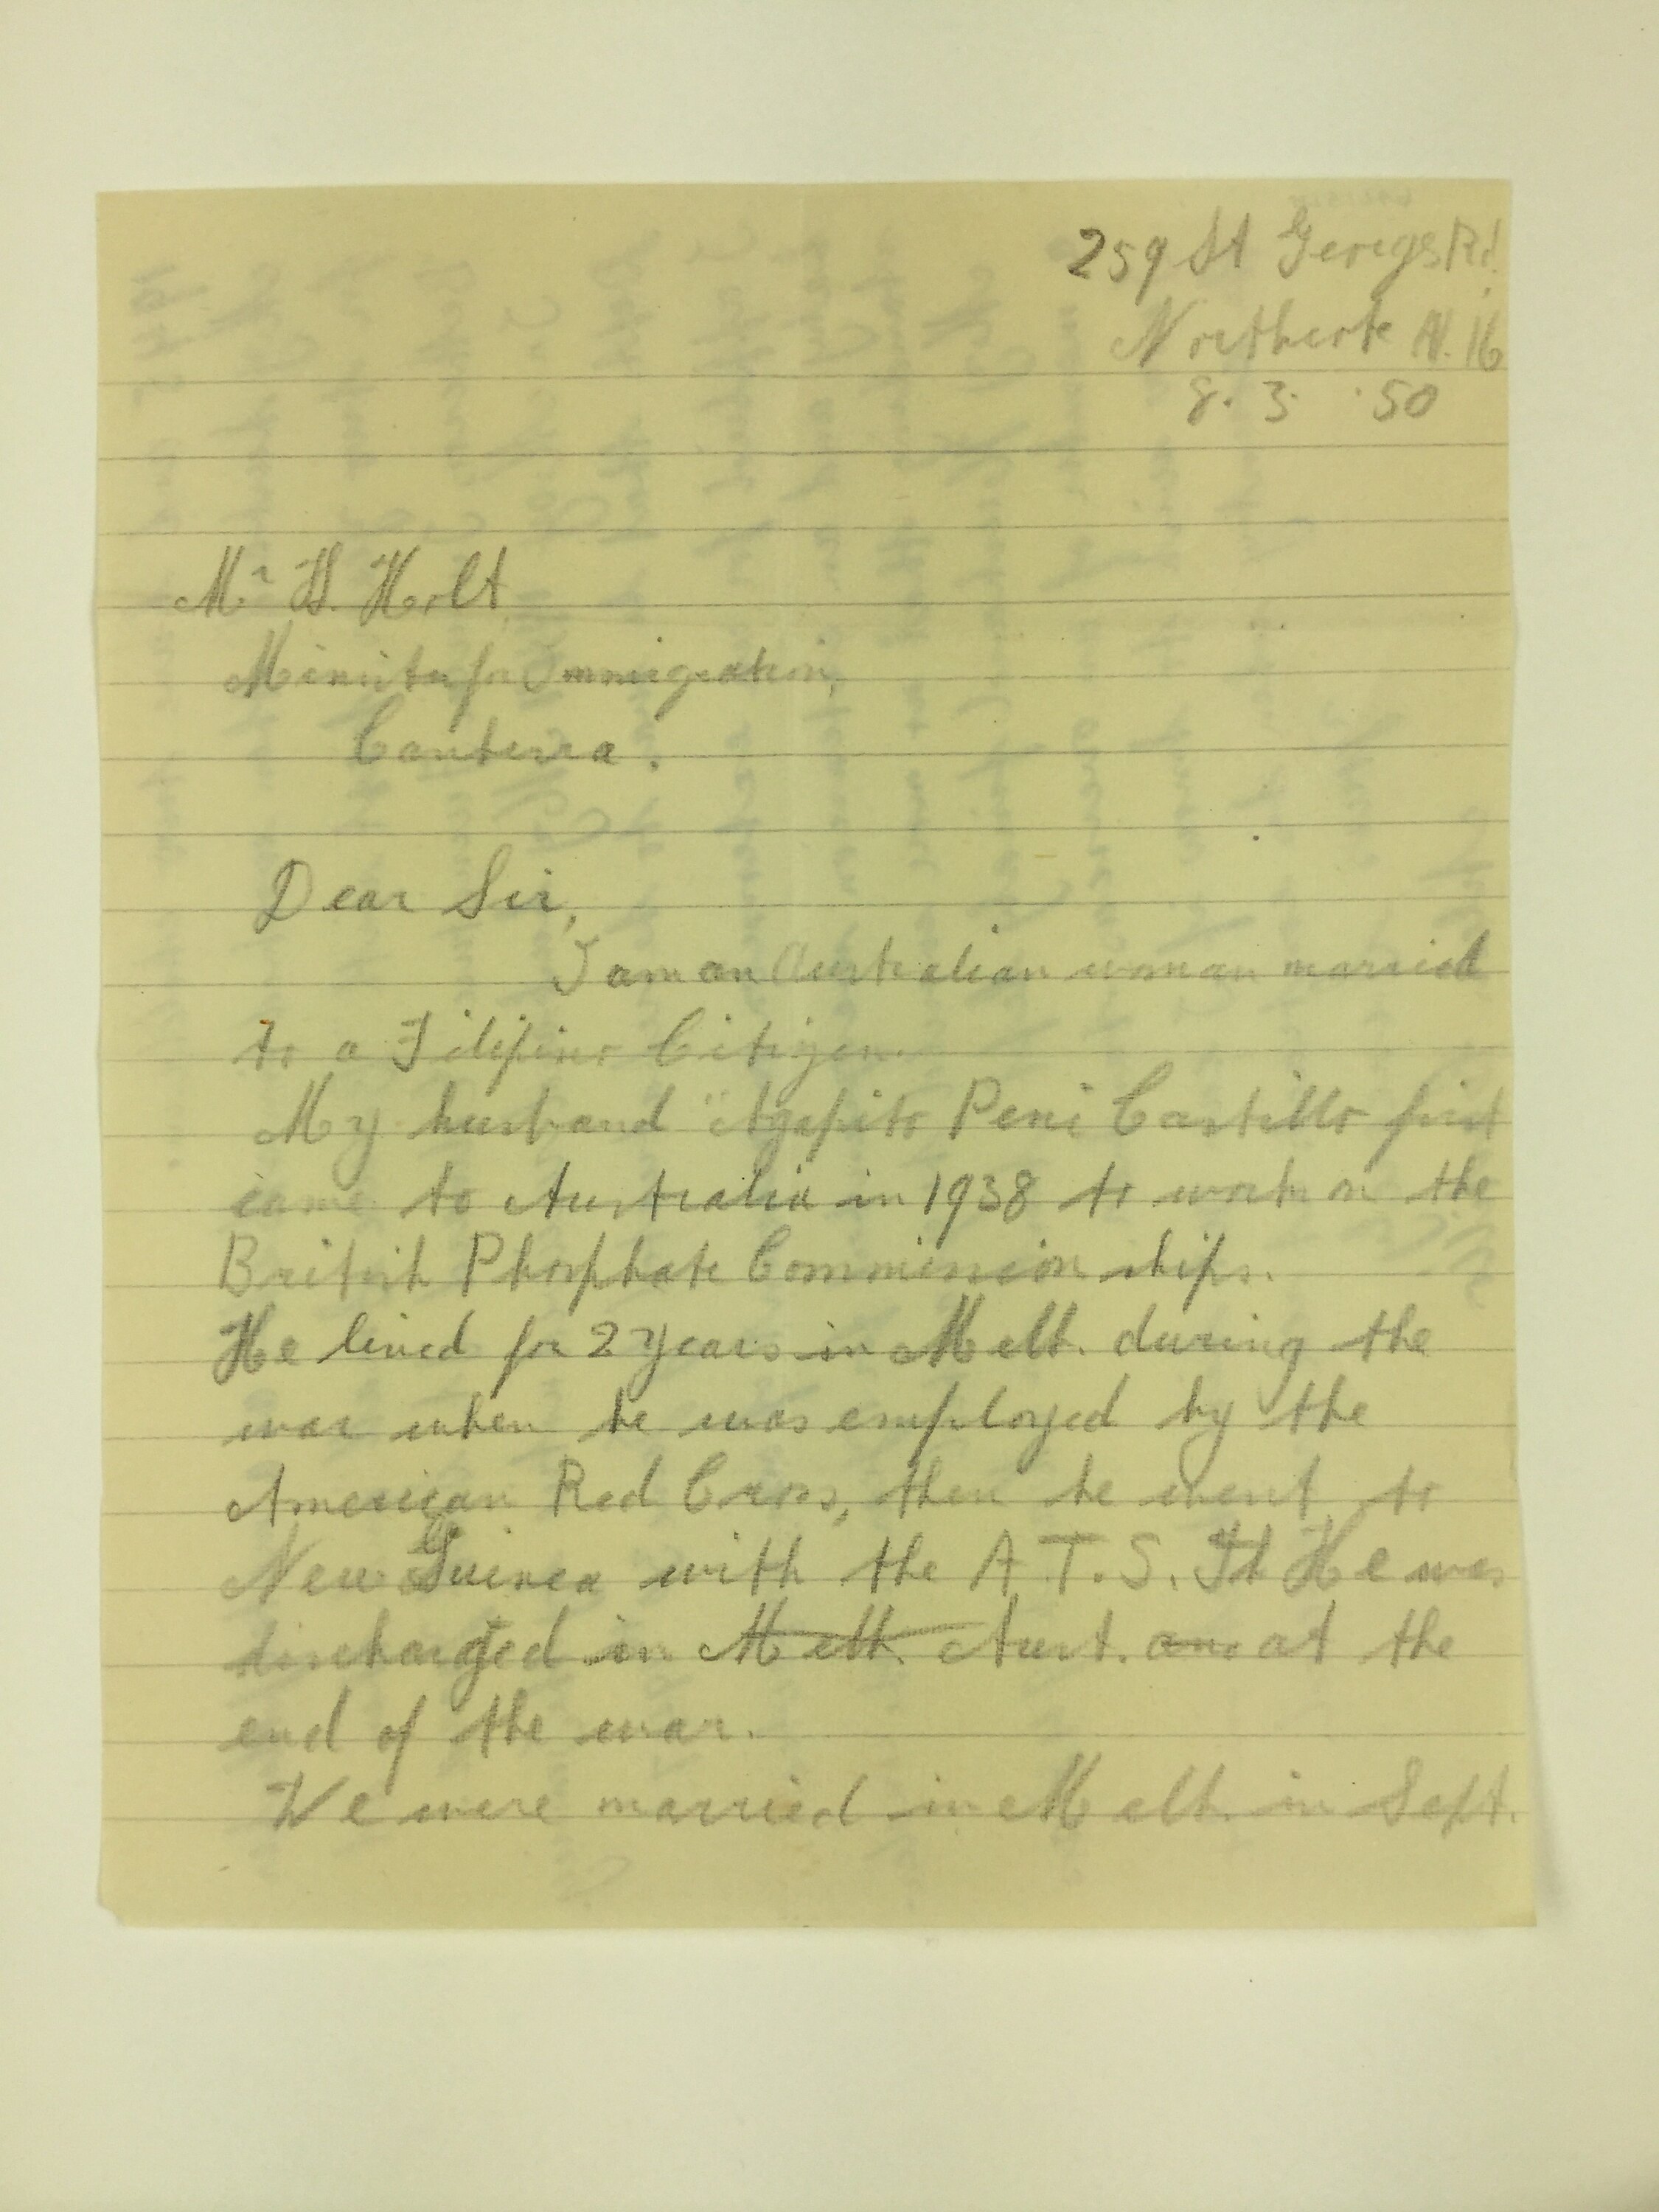 259 St Gerogs Rd.
Northcote N. 16
8. 3. 50
Mr H. Holt
Minister for Immigration,
Canberra.
Dear Sir,
I am an Australian woman married
to a Filipino Citizen.
My husband "Agapito Peni Castillo first
came to Australia in 1938 to work on the
British Phosphate Commission ships.
He lived for 2 years in Melb. during the
war when he was employed by the
American Red Cross, then he went to
New Guinea with the A.T.S. It He was
discharged in Melb. Aust. at the
end of the war.
We were married in Melb. in Sept.